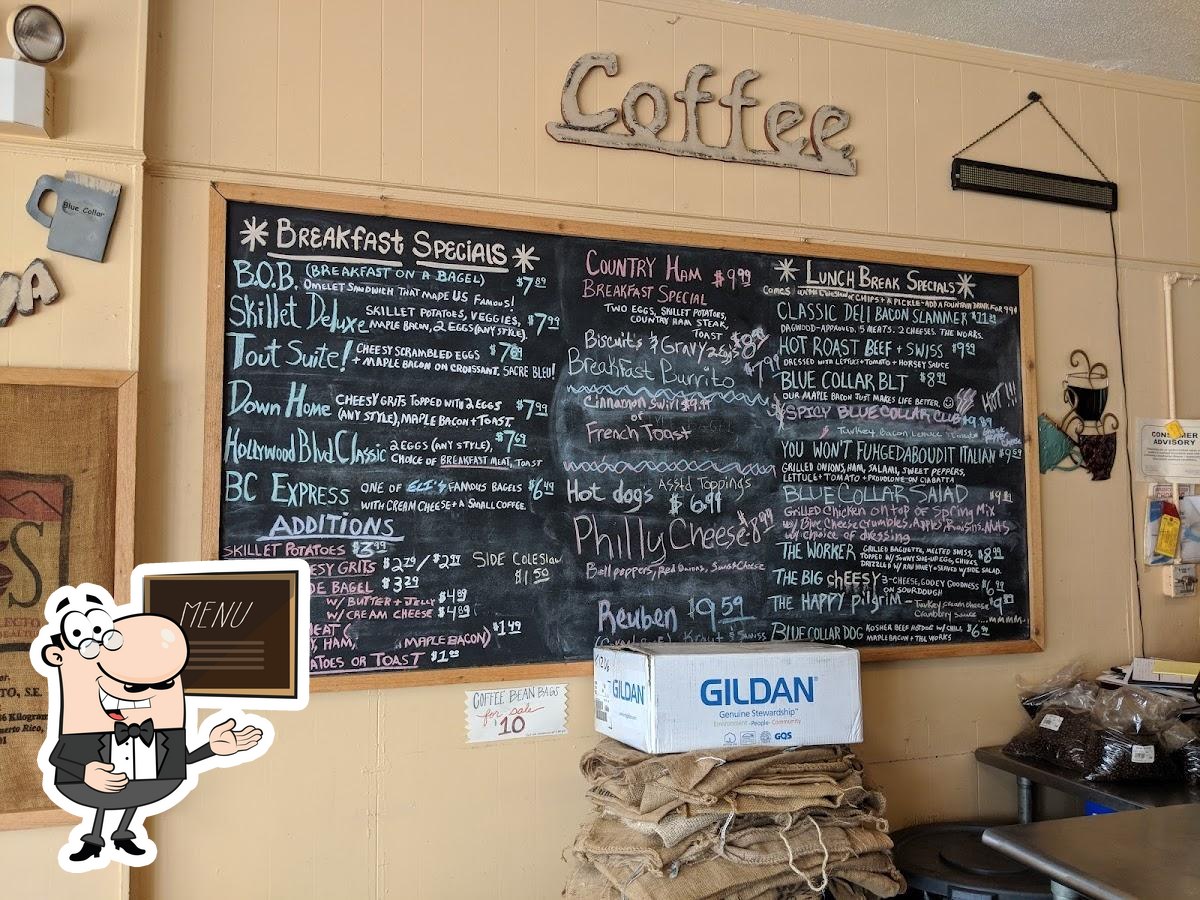 Coffee
Blue Collar
Breakfast Specials
B.O.B. (BREAKFAST ON A BAGEL) $7.89
OMELET SANDWICH THAT MADE US FAMOUS!
Skillet Deluxe SKILLET POTATOES, VEGGIES, $7.99
MAPLE BACON, 2 EGGS (ANY STYLE).
Tout Suite! CHEESY SCRAMBLED EGGS
+ MAPLE BACON ON CROISSANT. SACRE BLEU!
Down Home CHEESY GRITS TOPPED WITH 2 EGGS $7.99
(ANY STYLE), MAPLE BACON + TOAST
Hollywood Blvd Classic 2 EGGS (ANY STYLE), $7.69
CHOICE OF BREAKFAST MEAT, TOAST
BC Express ONE OF ELI'S FAMOUS BAGELS $6.49
WITH CREAM CHEESE + A SMALL COFFEE.
ADDITIONS
SKILLET POTATOES $3.99
ESY GRITS $2.79/$2.99
DE BAGEL $3.29
W/ BUTTER + JELLY $4.09
W/ CREAM CHEESE $4.89
EAT
HAM, MAPLE BACON) $1.49
ATOES OR TOAST
SIDE COLESLAW
$1.50
COUNTRY HAM $9.99
BREAKFAST SPECIAL
TWO EGGS, SKILLET POTATOES,
COUNTRY HAM STEAK,
TOAST
Biscuits & Gravy 2 Eggs
Breakfast Burrito
Cinnamon Swirl
or
French Toast
Hot dogs Asst'd Toppings
$6.99
Philly Cheese
Bell peppers, Red Onions, Swiss Cheese
Reuben $9.59
Lunch Break Specials
CHIPS + A PICKLE - ADD A FOUNTAIN DRINK FOR 99¢
CLASSIC DELI BACON SLAMMER
DAGWOOD-APPROVED. 5 MEATS. 2 CHEESES. THE WORKS.
HOT ROAST BEEF + SWISS $9.59
DRESSED WITH LETTUCE + TOMATO + HORSEY SAUCE
BLUE COLLAR BLT
OUR MAPLE BACON JUST MAKES LIFE BETTER. ☺
HOT!!!
SPICY BLUE COLLAR CLUB $9.89
Turkey, Bacon Lettuce Tomato
YOU WON'T FUHGEDABOUDIT ITALIAN $9.59
GRILLED ONIONS, HAM, SALAMI, SWEET PEPPERS,
LETTUCE + TOMATO + PROVOLONE ON CIABATTA
BLUE COLLAR SALAD
Grilled Chicken on top of Spring Mix
w/ Blue Cheese Crumbles, Apples, Raisins, Nuts,
w/ choice of dressing
THE WORKER GRILLED BAGUETTE, MELTED SWISS, $8.99
TOPPED W/ SUNNY SIDE-UP EGG, CHIVES,
DRIZZLED W/ RAW HONEY + SERVED W/ SIDE SALAD.
THE BIG CHEESY 3-CHEESE, GOOEY GOODNESS
ON SOURDOUGH
THE HAPPY Pilgrim - Turkey, cream cheese
Cranberry sauce
BLUE COLLAR DOG KOSHER BEEF HOTDOG W/ CHILI
MAPLE BACON + THE WORKS
CONSUMER
ADVISORY
MENU
COFFEE BEAN BAGS
for sale
$10
GILDAN
GILDAN
Genuine Stewardship
Environment · People · Community
GQS